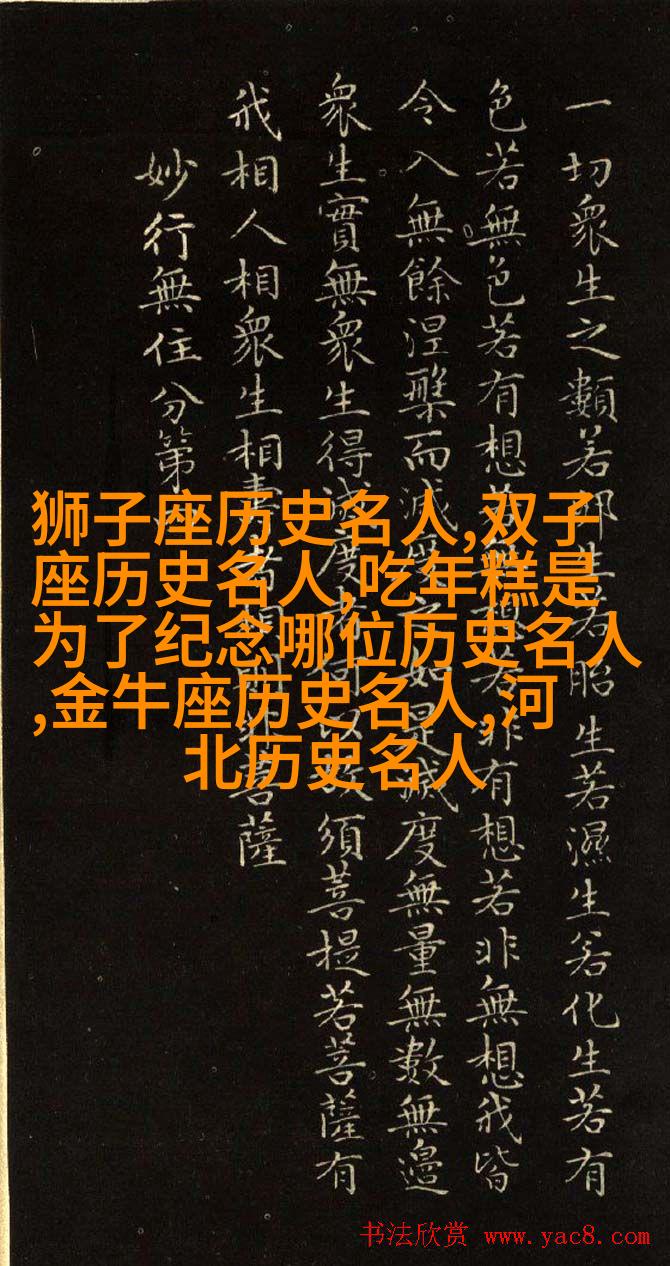 一切衆生之類若卵生若胎生若濕生若化生若有
色若無色若有想若無想若非有想若非無想我皆
令入無餘涅槃而滅度之如是滅度無量無數無邊
衆生實無衆生得滅度者何以故須菩提若菩薩有
我相人相衆生相壽者相菩薩
妙行無住分第
狮子座历史名人,双子
座历史名人,吃年糕是
为了纪念哪位历史名人
,金牛座历史名人,河
北历史名人
书法欣赏 www.yac8.com